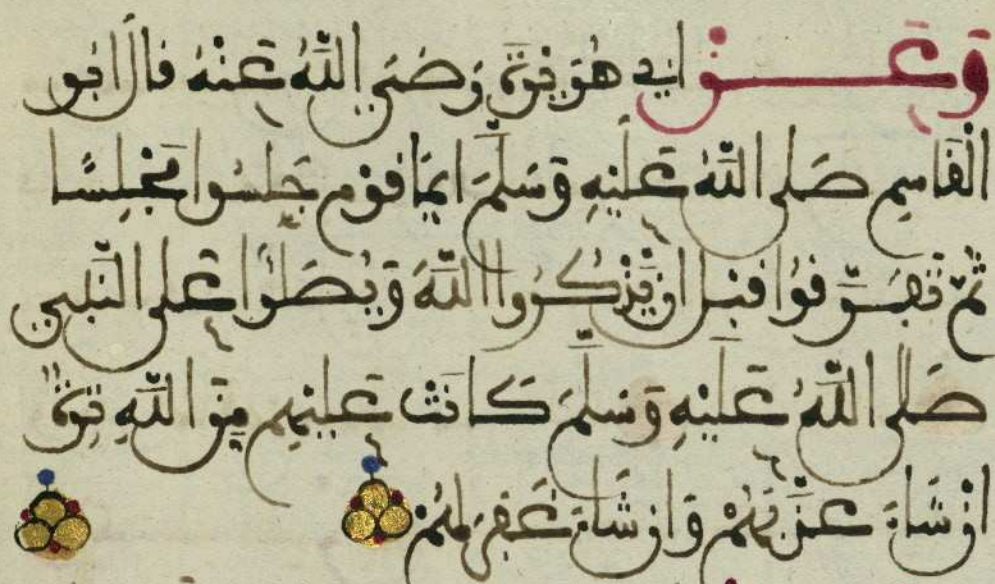 وَعَنْ ابي هُرَيْرَةَ رَضِيَ اللَّهُ عَنْهُ قَالَ ابُو
الْقَاسِمِ صَلى اللَّهُ عَلَيْهِ وَسَلَّمَ ايّمَا قَوْمٍ جَلَسُوا مَجْلِسًا
ثُمَّ تَفَرَّقُوا قَبْلَ انْ يَذْكُرُوا اللَّهَ وَيُصَلُّوا عَلَى النَّبِيِّ
صَلى اللَّهُ عَلَيْهِ وَسَلَّمَ كَانَتْ عَلَيْهِم مِنَ اللَّهِ تِرَةٌ
انْ شَاءَ عَذَّبَهُمْ وَانْ شَاءَ غَفَرَ لَهُمْ